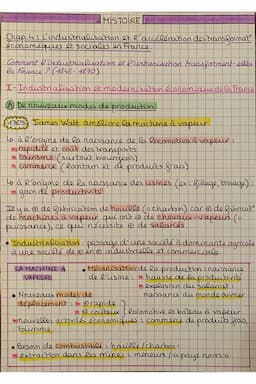 HISTOIRE
Chap.4: L'industrialisation et l'accélération des transformat°
économiques et sociales en France.
Comment l'industrialisation et l'urbanisation transforment-elles
la France ? (1848-1870)
I - Industrialisation et modernisation économique de la France
A De nouveaux modes de production
1769 James Watt améliore la machine à vapeur
↳ à l'origine de la naissance de la locomotive à vapeur :
= rapidité et coût des transports
= tourisme (surtout bourgeois)
= commerce (lointain et de produits frais)
↳ à l'origine de la naissance des usines (ex: filage, tissage) :
= gain de productivité
Il y a ⊕ de fabrication de houille (= charbon) car ⊕ de fabricat°
de machines à vapeur qui ont ⊕ de chevaux-vapeur (=
puissance), ce qui nécessite ⊕ de salariés
• Industrialisation : passage d'une société à dominante agricole
à une société de ⊕ en ⊕ industrielle et commerciale
LA MACHINE À
VAPEUR
• Mécanisation de la production : naissance
de l'usine = hausse de la productivité
= explosion du salariat :
naissance du monde ouvrier
• Nouveaux modes de
déplacement : = ⊕ rapide
= ⊕ coûteux locomotive et bateau à vapeur
= nouvelles activités économiques : commerce de produits frais,
tourisme
• Besoin de combustible : houille/charbon
= extraction dans les mines : mineurs / "pays noirs"